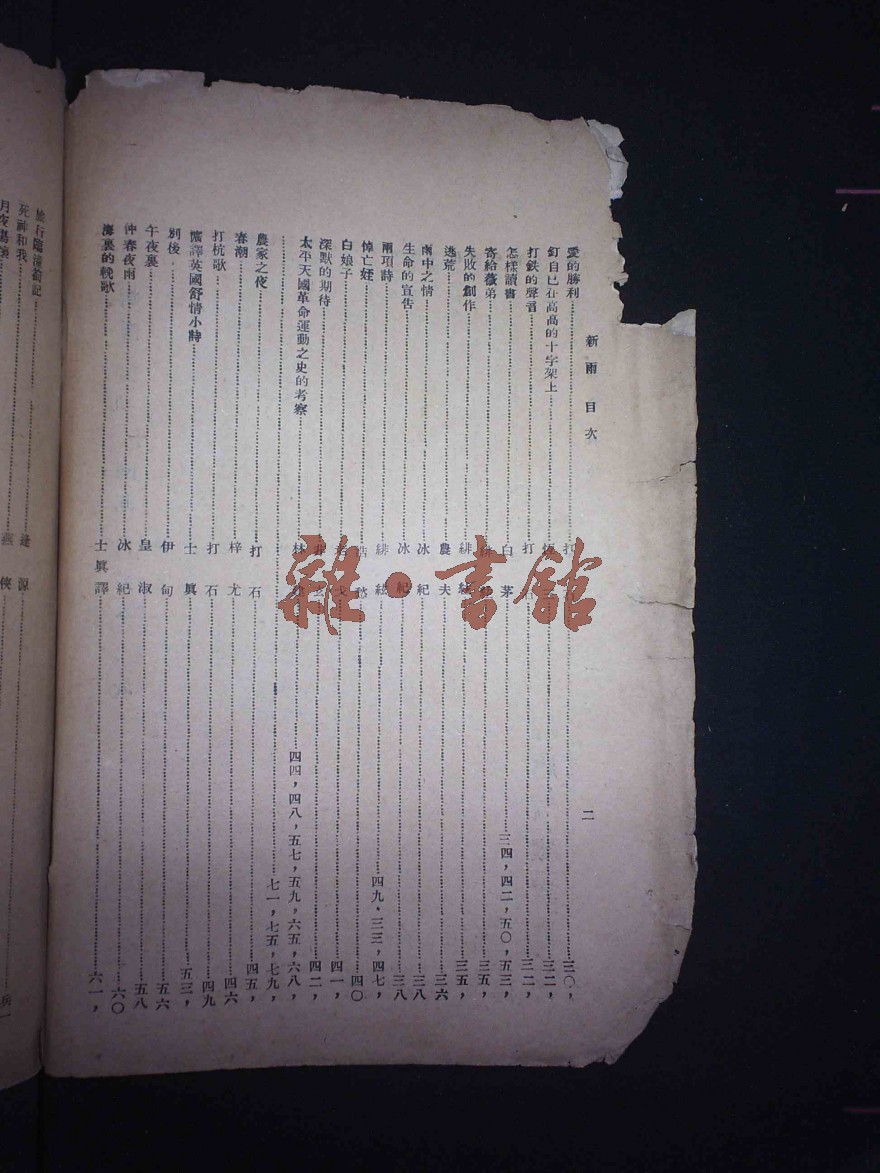 新雨目次 二
愛的勝利 三〇，
釘自己在高高的十字架上 三二，
打鉄的聲音 打 三二，
怎樣讀書 白茅 三四，四二，五〇，五三，
寄給薇弟 三五，
失敗的創作 緋 三五，
逃荒 農夫 三六
雨中之情 冰紀 三八
生命的宣告 冰紀 三八
兩項詩 緋 四九．三三，四七，
悼亡姪 愁 四〇
白娘子 四一，
深默的期待 四二，
太平天國革命運動之史的考察 林 四四，四八，五七，五九，六五，六八，
七一，七五，七九，
農家之夜 打石 四五，
春潮 梓尤 四六
打杭歌 打石 四九
懺譯英國舒情小詩 士眞 五三，
別後 伊甸 五六
午夜裏 皇淑 五八
仲春夜雨 冰紀 六〇
海裏的戟歌 士眞譯 六一，
旅行臨 記 逢源
死神和我 燕俠
月夜 兵一
雜·書館